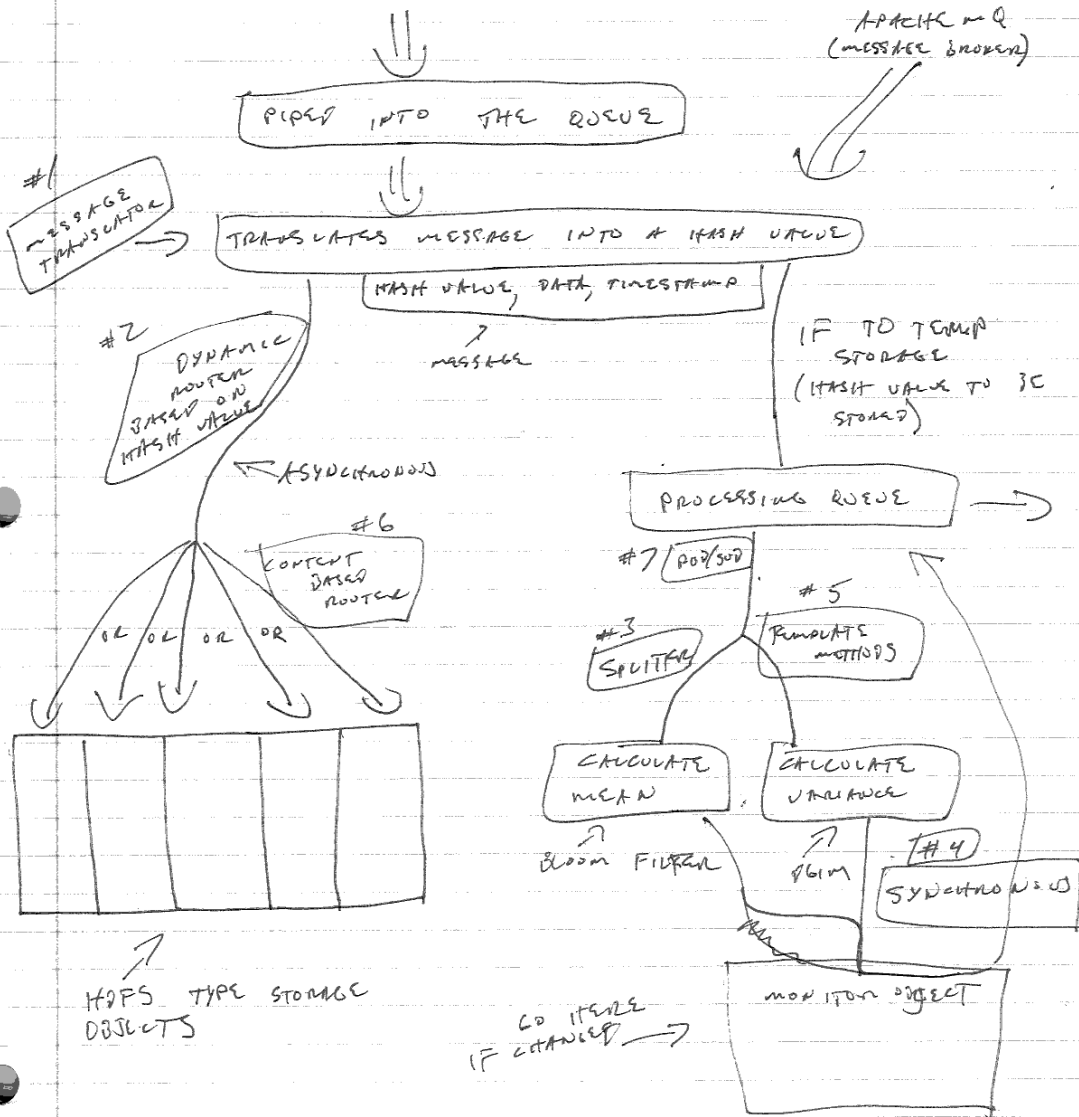 APACHE MQ
(MESSAGE BROKER)
PIPED INTO THE QUEUE
#1
MESSAGE
TRANSLATOR
TRANSLATES MESSAGE INTO A HASH VALUE
HASH VALUE, DATA, TIMESTAMP
MESSAGE
#2
DYNAMIC
ROUTER
BASED ON
HASH VALUE
IF TO TEMP
STORAGE
(HASH VALUE TO BE
STORED)
ASYNCHRONOUS
PROCESSING QUEUE
#6
CONTENT
BASED
ROUTER
OR OR OR OR
#7
#3
SPLITTER
#5
TEMPLATE
METHODS
CALCULATE
MEAN
CALCULATE
VARIANCE
BLOOM FILTER
DGIM
#4
SYNCHRONOUS
HDFS TYPE STORAGE
OBJECTS
GO HERE
IF CHANGED
MONITOR OBJECT